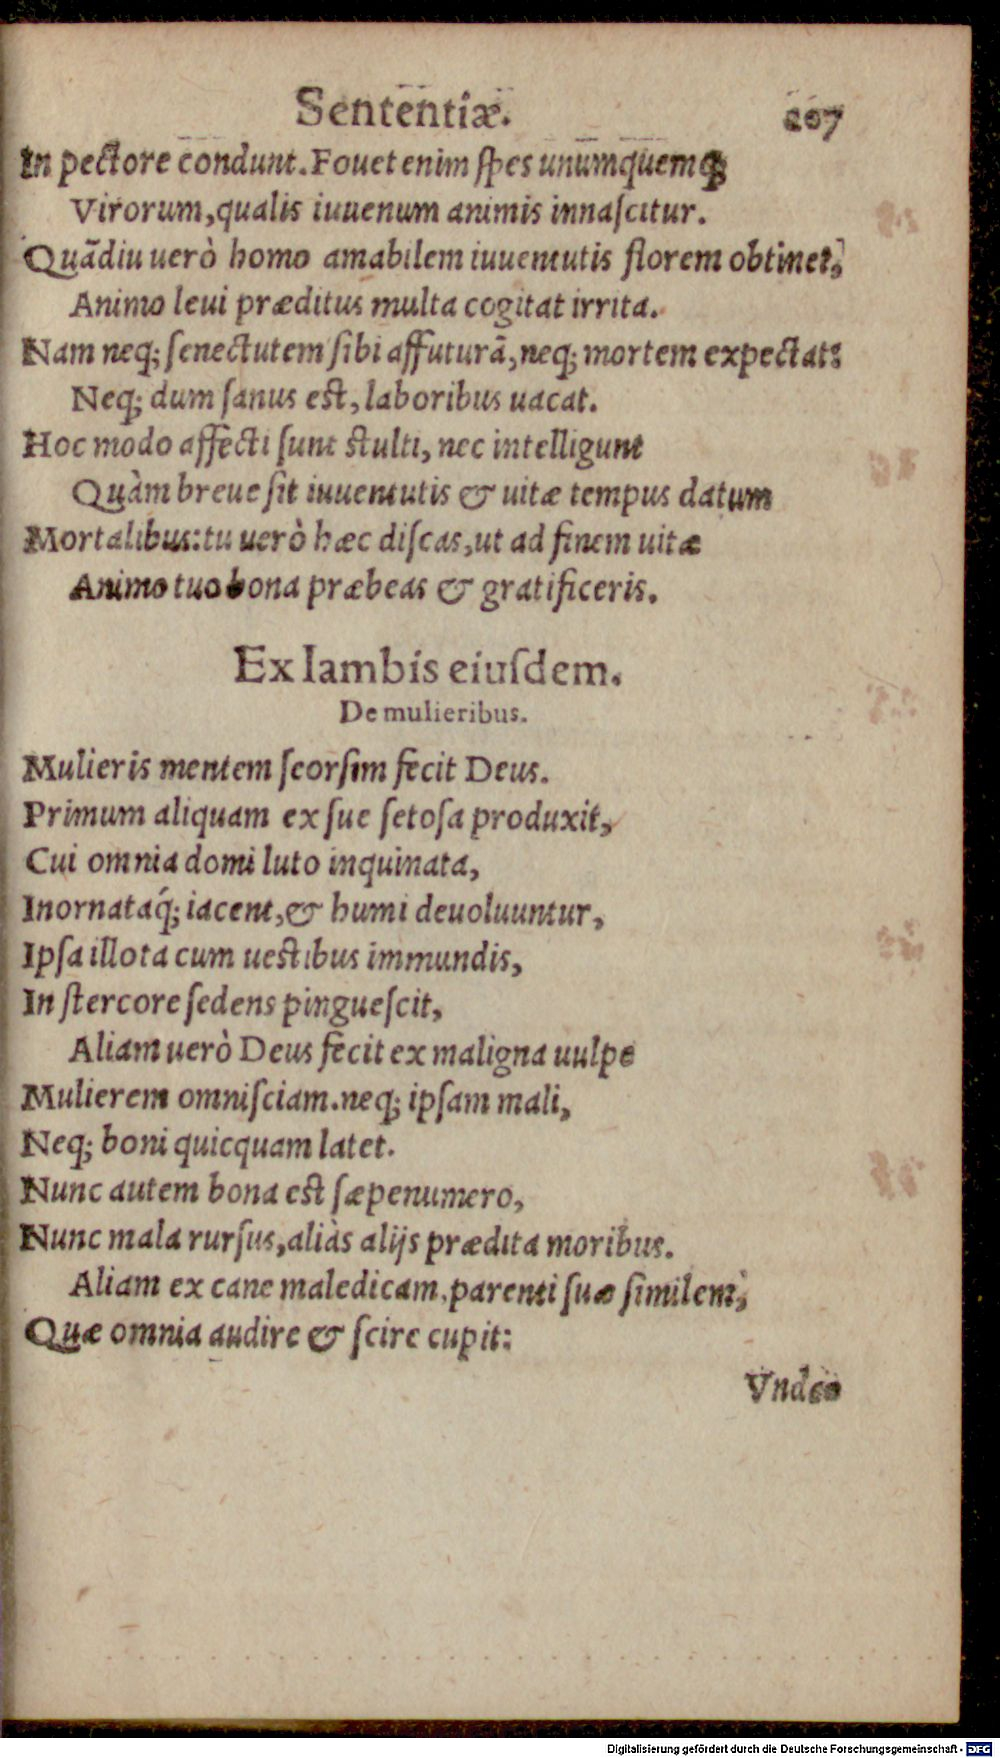 Sententiæ. 207
In pectore condunt. Fouet enim ſpes unumquemq;
Virorum, qualis iuuenum animis innaſcitur.
Quãdiu uerò homo amabilem iuuentutis florem obtinet,
Animo leui præditus multa cogitat irrita.
Nam neq; ſenectutem ſibi affuturã, neq; mortem expectat:
Neq; dum ſanus eſt, laboribus uacat.
Hoc modo affecti ſunt ſtulti, nec intelligunt
Quàm breue ſit iuuentutis & uitæ tempus datum
Mortalibus: tu uerò hæc diſcas, ut ad finem uitæ
Animo tuo bona præbeas & gratificeris.
Ex Iambis eiuſdem.
De mulieribus.
Mulieris mentem ſeorſim fecit Deus.
Primum aliquam ex ſue ſetoſa produxit,
Cui omnia domi luto inquinata,
Inornataq́; iacent, & humi deuoluuntur,
Ipſa illota cum ueſtibus immundis,
In ſtercore ſedens pingueſcit,
Aliam uerò Deus fecit ex maligna uulpe
Mulierem omniſciam. neq; ipſam mali,
Neq; boni quicquam latet.
Nunc autem bona eſt ſæpenumero,
Nunc mala rurſus, aliàs alijs prædita moribus.
Aliam ex cane maledicam, parenti ſuæ ſimilem,
Quæ omnia audire & ſcire cupit:
Vndeo
Digitalisierung gefördert durch die Deutsche Forschungsgemeinschaft - DFG